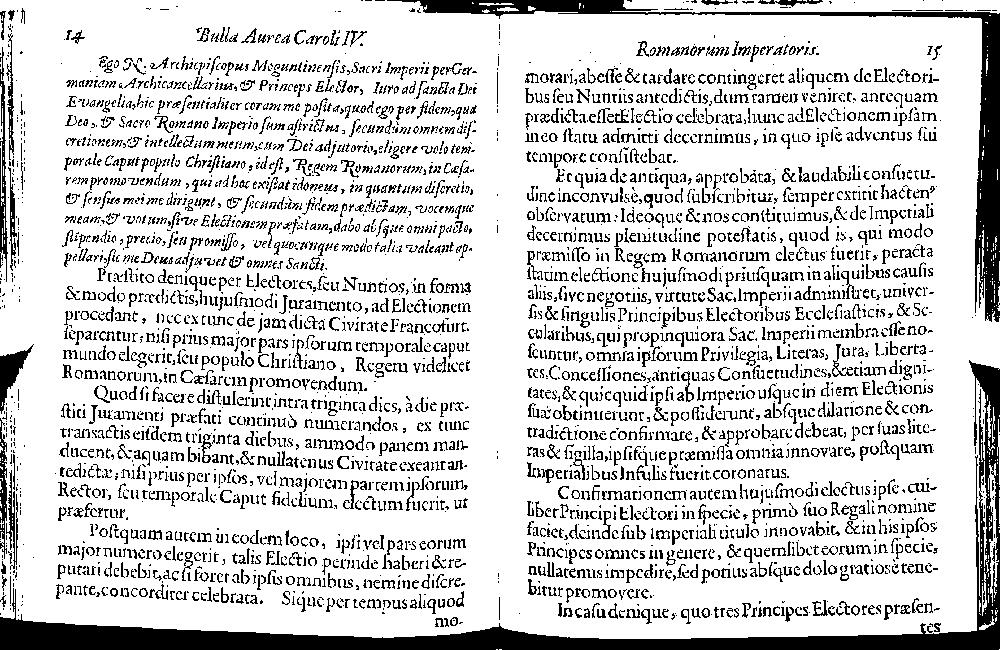 14 Bulla Aurea Caroli IV.
Ego N. Archiepiscopus Moguntinensis, Sacri Imperii per Ger-
maniam Archicancellarius, & Princeps Elector, Iuro ad sancta Dei
Evangelia, hic præsentialiter coram me posita, quod ego per fidem, qua
Deo, & Sacro Romano Imperio sum astrictus, secundùm omnem dis-
cretionem, & intellectum meum, cum Dei adjutorio, eligere volo tem-
porale Caput populo Christiano, id est, Regem Romanorum, in Cæsa-
rem promovendum, qui ad hoc existat idoneus, in quantum discretio,
& sensus mei me dirigunt, & secundùm fidem prædictam, vocemque
meam, & votum, sive Electionem præfatam, dabo absque omni pacto,
stipendio, precio, seu promisso, vel quocunque modo talia valeant ap-
pellari, sic me Deus adjuvet & omnes Sancti.
Præstito denique per Electores, seu Nuntios, in forma
& modo prædictis, hujusmodi Juramento, ad Electionem
procedant, nec ex tunc de jam dicta Civitate Francofurt.
separentur, nisi prius major pars ipsorum temporale caput
mundo elegerit, seu populo Christiano, Regem videlicet
Romanorum, in Cæsarem promovendum.
Quod si facere distulerint, intra triginta dies, à die præ-
stiti Juramenti præfati continuò numerandos, ex tunc
transactis eisdem triginta diebus, ammodo panem man-
ducent, & aquam bibant, & nullatenus Civitate exeant an-
tedictæ; nisi prius per ipsos, vel majorem partem ipsorum,
Rector, seu temporale Caput fidelium, electum fuerit, ut
præfertur.
Postquam autem in eodem loco, ipsi vel pars eorum
major numero elegerit, talis Electio perinde haberi & re-
putari debebit, ac si foret ab ipsis omnibus, nemine discre-
pante, concorditer celebrata. Sique per tempus aliquod
mo-
Romanorum Imperatoris. 15
morari, abesse & tardare contingeret aliquem de Electori-
bus seu Nuntiis antedictis, dum tamen veniret, antequam
prædicta esset Electio celebrata, hunc ad Electionem ipsam
in eo statu admitti decernimus, in quo ipse adventus sui
tempore consistebat.
Et quia de antiqua, approbata, & laudabili consuetu-
dine inconvulsè, quod subscribitur, semper extitit hacten⁹
observatum: Ideoque & nos constituimus, & de Imperiali
decernimus plenitudine potestatis, quod is, qui modo
præmisso in Regem Romanorum electus fuerit, peracta
statim electione hujusmodi priusquam in aliquibus causis
aliis, sive negotiis, virtute Sac. Imperii administret, univer-
sis & singulis Principibus Electoribus Ecclesiasticis, & Se-
cularibus, qui propinquiora Sac. Imperii membra esse no-
scuntur, omnia ipsorum Privilegia, Literas, Jura, Liberta-
tes, Concessiones, antiquas Consuetudines, & etiam digni-
tates, & quicquid ipsi ab Imperio usque in diem Electionis
suæ obtinuerunt, & possiderunt, absque dilatione & con-
tradictione confirmare, & approbare debeat, per suas lite-
ras & sigilla, ipsisque præmissa omnia innovare, postquam
Imperialibus Infulis fuerit coronatus.
Confirmationem autem hujusmodi electus ipse, cui-
liber Principi Electori in specie, primò suo Regali nomine
faciet, deinde sub Imperiali titulo innovabit, & in his ipsos
Principes omnes in genere, & quemlibet eorum in specie,
nullatenus impedire, sed potius absque dolo gratiosè tene-
bitur promovere.
In casu denique, quo tres Principes Electores præsen-
tes